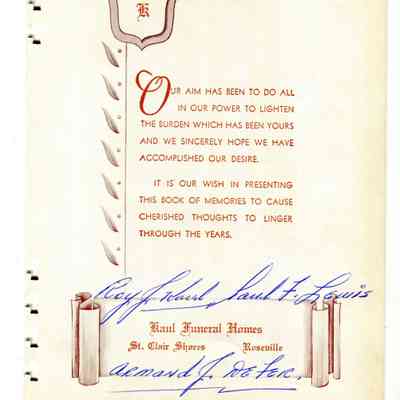 K
OUR AIM HAS BEEN TO DO ALL
IN OUR POWER TO LIGHTEN
THE BURDEN WHICH HAS BEEN YOURS
AND WE SINCERELY HOPE WE HAVE
ACCOMPLISHED OUR DESIRE.
IT IS OUR WISH IN PRESENTING
THIS BOOK OF MEMORIES TO CAUSE
CHERISHED THOUGHTS TO LINGER
THROUGH THE YEARS.
Roy J. Kaul Paul F. Lewis
Kaul Funeral Homes
St. Clair Shores Roseville
ARMAND J. DEFER.